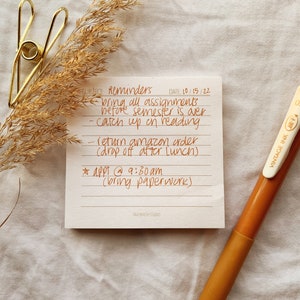 Reminders DATE 10.15.22
- bring all assignments
before semester is over
- catch up on reading
- return amazon order
(drop off after lunch)
★ appt @ 9:30am
(bring paperwork)
VINTAGE INK